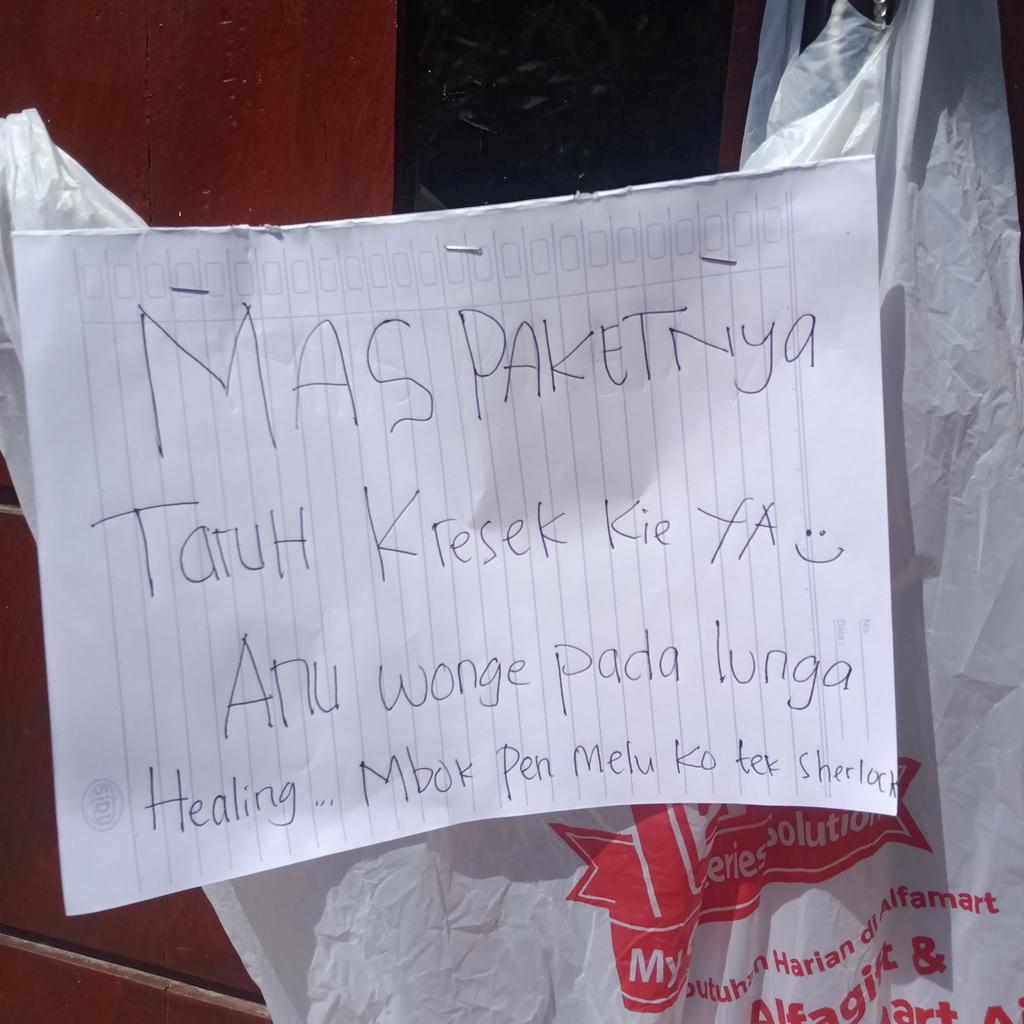 MAS PAKETNya
TaruH Kresek Kie YA
Anu wonge pada lunga
Healing... Mbok pen melu Ko tek sherlock
No.
Date:
sidu
eries
solution
My
butuhan Harian di Alfamart
Alfagift &
art